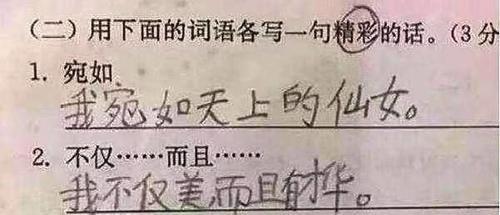 （二）用下面的词语各写一句精彩的话。（3分
1. 宛如
我宛如天上的仙女。
2. 不仅……而且……
我不仅美，而且有才华。